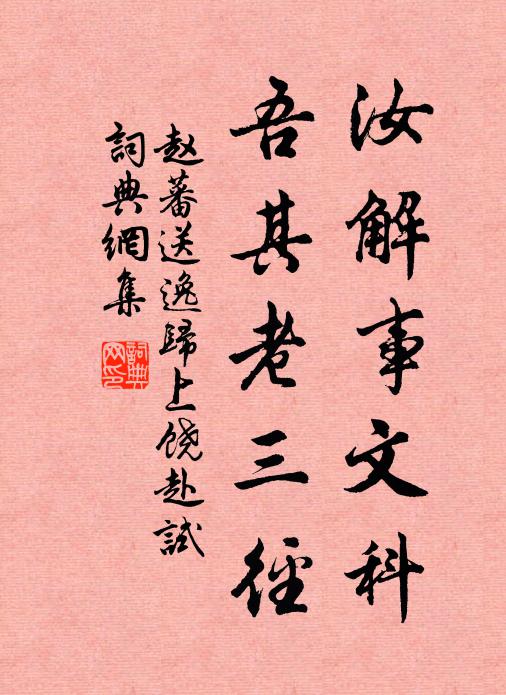 汝解事文科
吾其老三径
赵蕃送逸歸上饶赴試
詞典網集
詞典网印